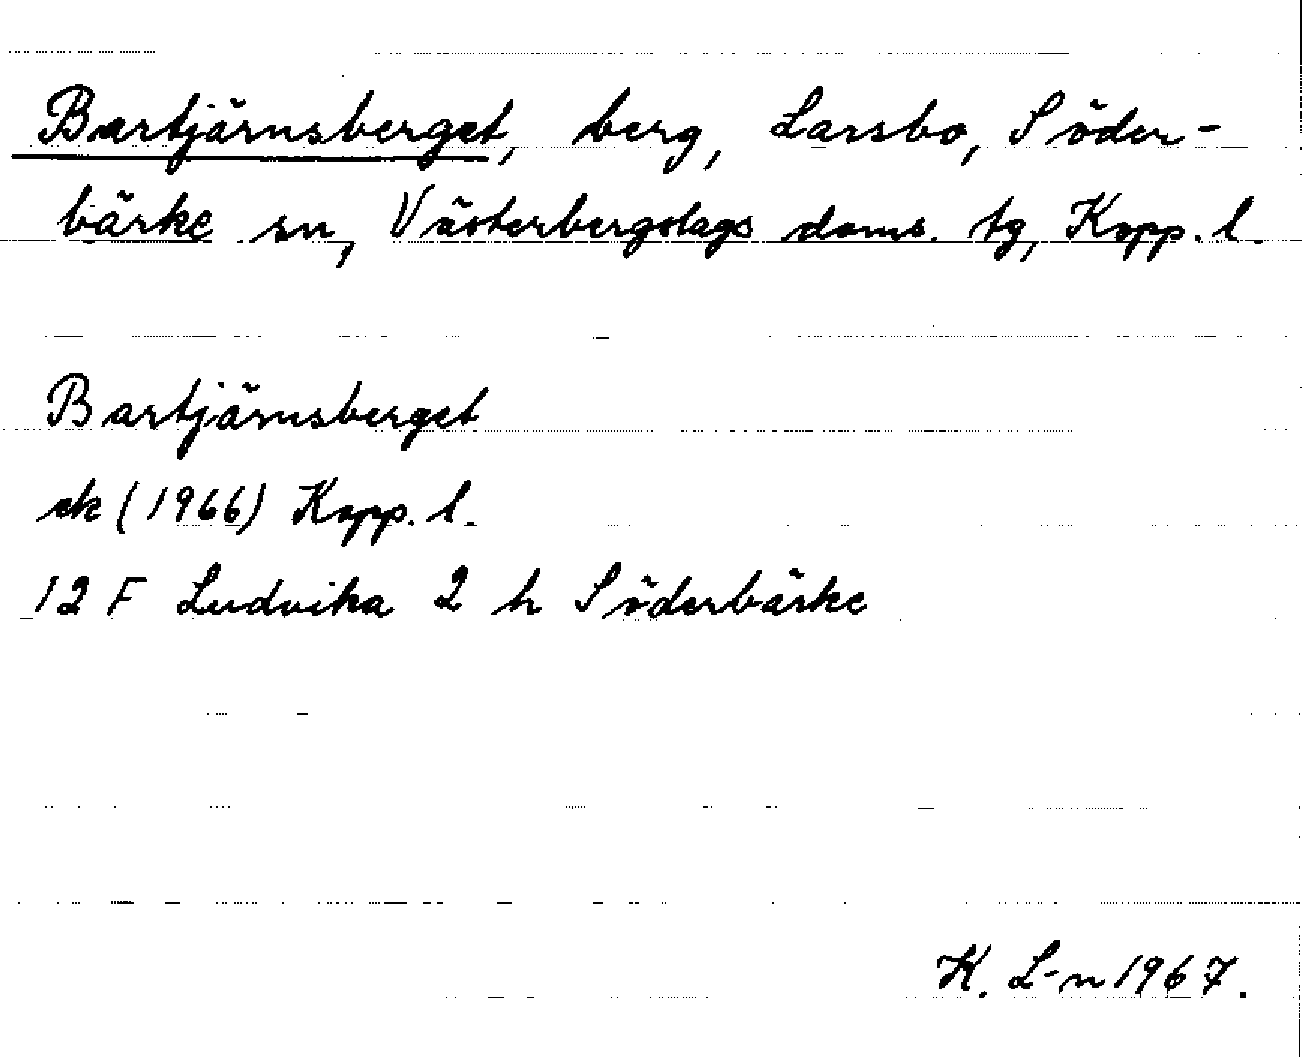 Bartjärnsberget, berg, Larsbo, Söder-
bärke sn, Västerbergslags doms. tg, Kopp. l.
Bartjärnsberget
ek (1966) Kopp. l.
12 F Ludvika 2 h Söderbärke
K. L-n 1967.